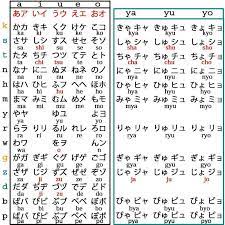 a i u e o ya yu yo
あア いイ うウ えエ おオ
k かカ きキ くク けケ こコ きゃキャ きゅキュ きょキョ
ka ki ku ke ko kya kyu kyo
s さサ しシ すス せセ そソ しゃシャ しゅシュ しょショ
sa shi su se so sha shu sho
t たタ ちチ つツ てテ とト ちゃチャ ちゅチュ ちょチョ
ta chi tsu te to cha chu cho
n なナ にニ ぬヌ ねネ のノ にゃニャ にゅニュ にょニョ
na ni nu ne no nya nyu nyo
h はハ ひヒ ふフ へヘ ほホ ひゃヒャ ひゅヒュ ひょヒョ
ha hi fu he ho hya hyu hyo
m まマ みミ むム めメ もモ みゃミャ みゅミュ みょミョ
ma mi mu me mo mya myu myo
y やヤ ゆユ よヨ
ya yu yo
r らラ りリ るル れレ ろロ りゃリャ りゅリュ りょリョ
ra ri ru re ro rya ryu ryo
w わワ をヲ んン
wa o n
g がガ ぎギ ぐグ げゲ ごゴ ぎゃギャ ぎゅギュ ぎょギョ
ga gi gu ge go gya gyu gyo
z ざザ じジ ずズ ぜゼ ぞゾ じゃジャ じゅジュ じょジョ
za ji zu ze zo ja ju jo
d だダ ぢヂ づヅ でデ どド
da ji zu de do
b ばバ びビ ぶブ べベ ぼボ びゃビャ びゅビュ びょビョ
ba bi bu be bo bya byu byo
p ぱパ ぴピ ぷプ ぺペ ぽポ ぴゃピャ ぴゅピュ ぴょピョ